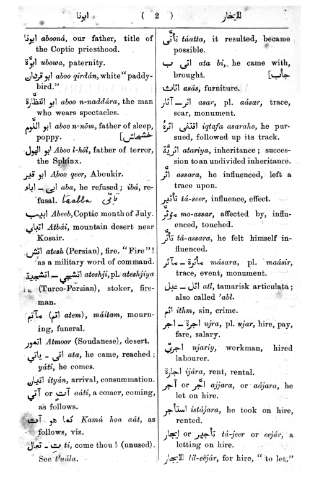 ابونا ( 2 ) للايجار
ابونا aboona, our father, title of
the Coptic priesthood.
ابوّة ubowa, paternity.
ابو قردان aboo qirdán, white "paddy-
bird."
ابو النظارة aboo n-naddára, the man
who wears spectacles.
ابو النوم aboo n-nóm, father of sleep,
poppy.
ابو الهول aboo l-hól, father of terror,
the Sphinx.
ابو قير Aboo qeer, Aboukir.
ابى - اباء aba, he refused; ibá, re-
fusal.
ابيب Abeeb, Coptic month of July.
اتباى Atbái, mountain desert near
Kosair.
اتش atesh (Persian), fire. "Fire"!
as a military word of command.
اتشجى - اتشجية ateshji, pl. ateshjiya
(Turco-Persian), stoker, fire-
man.
ماتم (اتم atem), máitam, mourn-
ing, funeral.
اتمور Atmoor (Soudanese), desert.
اتى - ياتى ata, he came, reached;
yáti, he comes.
اتيان ityán, arrival, consummation.
آتى or آت aáti, a comer, coming,
as follows.
كما هو آت Kamá hoa aát, as
follows, viz.
ت - تعال ti, come thou! (unused).
See t'aála.
تأتّى táatta, it resulted, became
possible.
اتى ب ata bi, he came with,
brought.
اثاث asás, furniture.
اثر - آثار asar, pl. aásar, trace,
scar, monument.
اقتفى اثره iqtafa asaraho, he pur-
sued, followed up its track.
اثريّة atariya, inheritance; succes-
sion to an undivided inheritance.
اثّر assara, he influenced, left a
trace upon.
تأثير tá-seer, influence, effect.
مؤثّر mo-assar, affected by, influ-
enced, touched.
تأثّر tá-assara, he felt himself in-
fluenced.
مأثرة - مآثر másara, pl. maásir,
trace, event, monument.
اثل - عبل atl, tamarisk articulata;
also called 'abl.
اثم ithm, sin, crime.
اجرة - اجر ujra, pl. ujar, hire, pay,
fare, salary.
اجرىّ ujariy, workman, hired
labourer.
اجارة ijára, rent, rental.
اجّر or آجر ajjara, or aájara, he
let on hire.
استأجر istájara, he took on hire,
rented.
تأجير or ايجار tá-jeer or eejár, a
letting on hire.
للايجار lil-eejár, for hire, "to let."